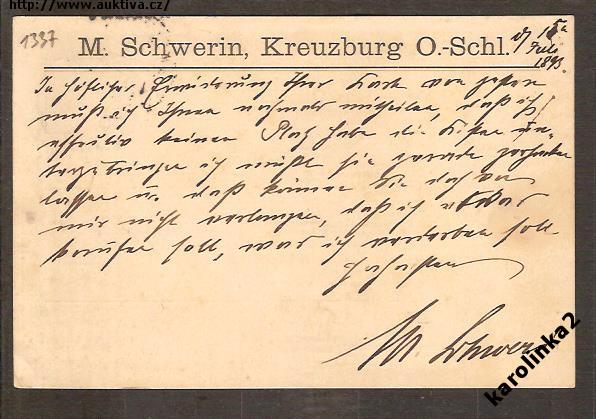 http://www.auktiva.cz/
1337
M. Schwerin, Kreuzburg O.-Schl. d/ 15ᵗᵉⁿ
Juli
1893.
In höflicher Erwiderung Ihrer Karte von gestern
muß ich Ihnen nochmals mittheilen, daß ich
effectiv keinen Platz habe die Kisten un-
terzubringen ich müßte sie gerade
lassen u. daß können Sie doch von
mir nicht verlangen, daß ich etwas
kaufen soll, was ich verderben soll.
Hochachtend
M. Schwerin
karolinka2